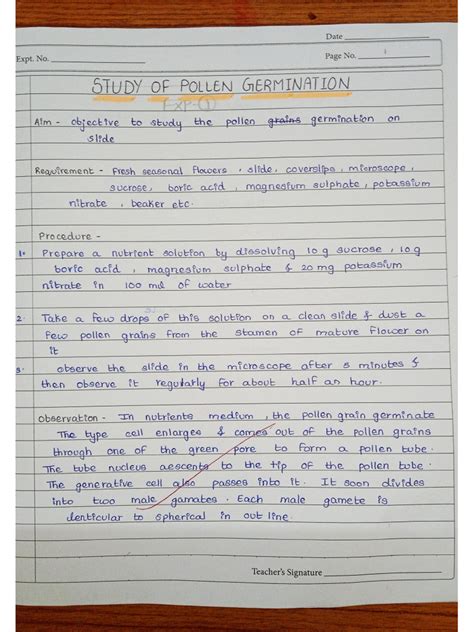 Date
Expt. No.
Page No. 1
STUDY OF POLLEN GERMINATION
EXP-①
Aim - objective to study the pollen grains germination on
slide
Requirement - Fresh seasonal flowers, slide, coverslips, microscope,
sucrose, boric acid, magnesium sulphate, potassium
nitrate, beaker etc.
Procedure -
1. Prepare a nutrient solution by dissolving 10 g sucrose, 10 g
boric acid, magnesium sulphate & 20 mg potassium
nitrate in 100 ml of water
2. Take a few drops of this solution on a clean slide & dust a
few pollen grains from the stamen of mature flower on
it
3. observe the slide in the microscope after 5 minutes &
then observe it regularly for about half an hour.
Observation - In nutrients medium, the pollen grain germinate
The type cell enlarges & comes out of the pollen grains
through one of the green pore to form a pollen tube.
The tube nucleus aescents to the tip of the pollen tube.
The generative cell also passes into it. It soon divides
into two male gamates. Each male gamete is
lenticular to spherical in out line.
Teacher's Signature